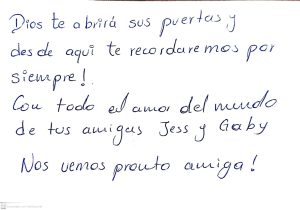 Dios te abrirá sus puertas y
desde aquí te recordaremos por
siempre!
Con todo el amor del mundo
de tus amigas Jess y Gaby
Nos vemos pronto amiga!